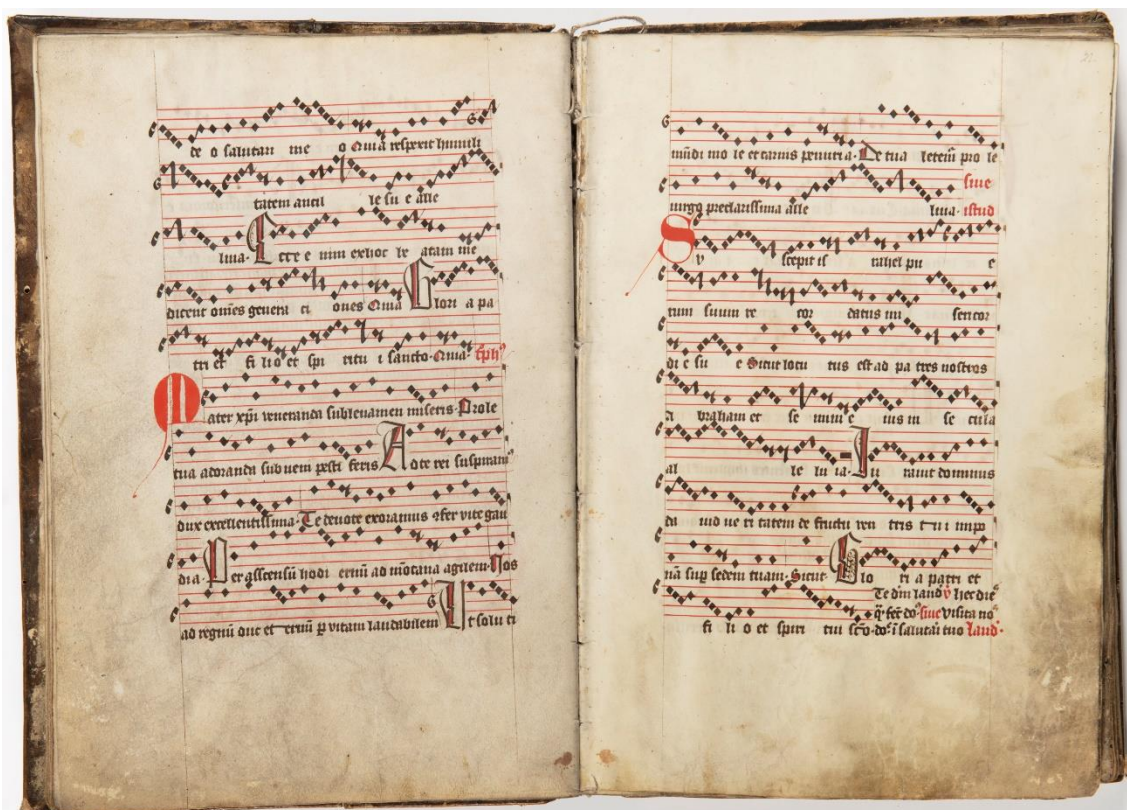 de o salutari me o Quia respexit humili
tatem ancil le su e alle
luia. Ecce e nim exhoc be atam me
dicent om̄es genera ti ones Quia Glori a pa
tri et fi li o et spi ritu i sancto. Quia.
Mater xp̄i veneranda sublevamen miseris. Prole
tua adoranda subveni pesti feris Ad te rei suspiram⁹
dux excellentissima. Te devote exoramus vite gau
dia. Per ascensū hodi ernū ad mōtana agilem. Nos
ad regnū duc et ernū p vitam laudabilem Ut solu ti
22.
mūdi mo le et carnis penuria. De tua letem̄ pro le
virgo preclarissima alle luia. sive
istud
Su scepit is rahel pu e
rum suum re cor datus mi sericor
di e su e Sicut locu tus est ad pa tres nostros
a braham et se mini e ius in se cula
al le lu ia. Iu ravit dominus
da vid ve ri tatem de fructu ven tris t u i impo
nā sup sedem tuam. Sicut. Glo ri a patri et
Te dm̄ laud⁹ v hec die⁹
fec̄ do⁹ sive visita no⁹
fi li o et spiri tui sc̄o. do⁹ ī salutari tuo laud⁹